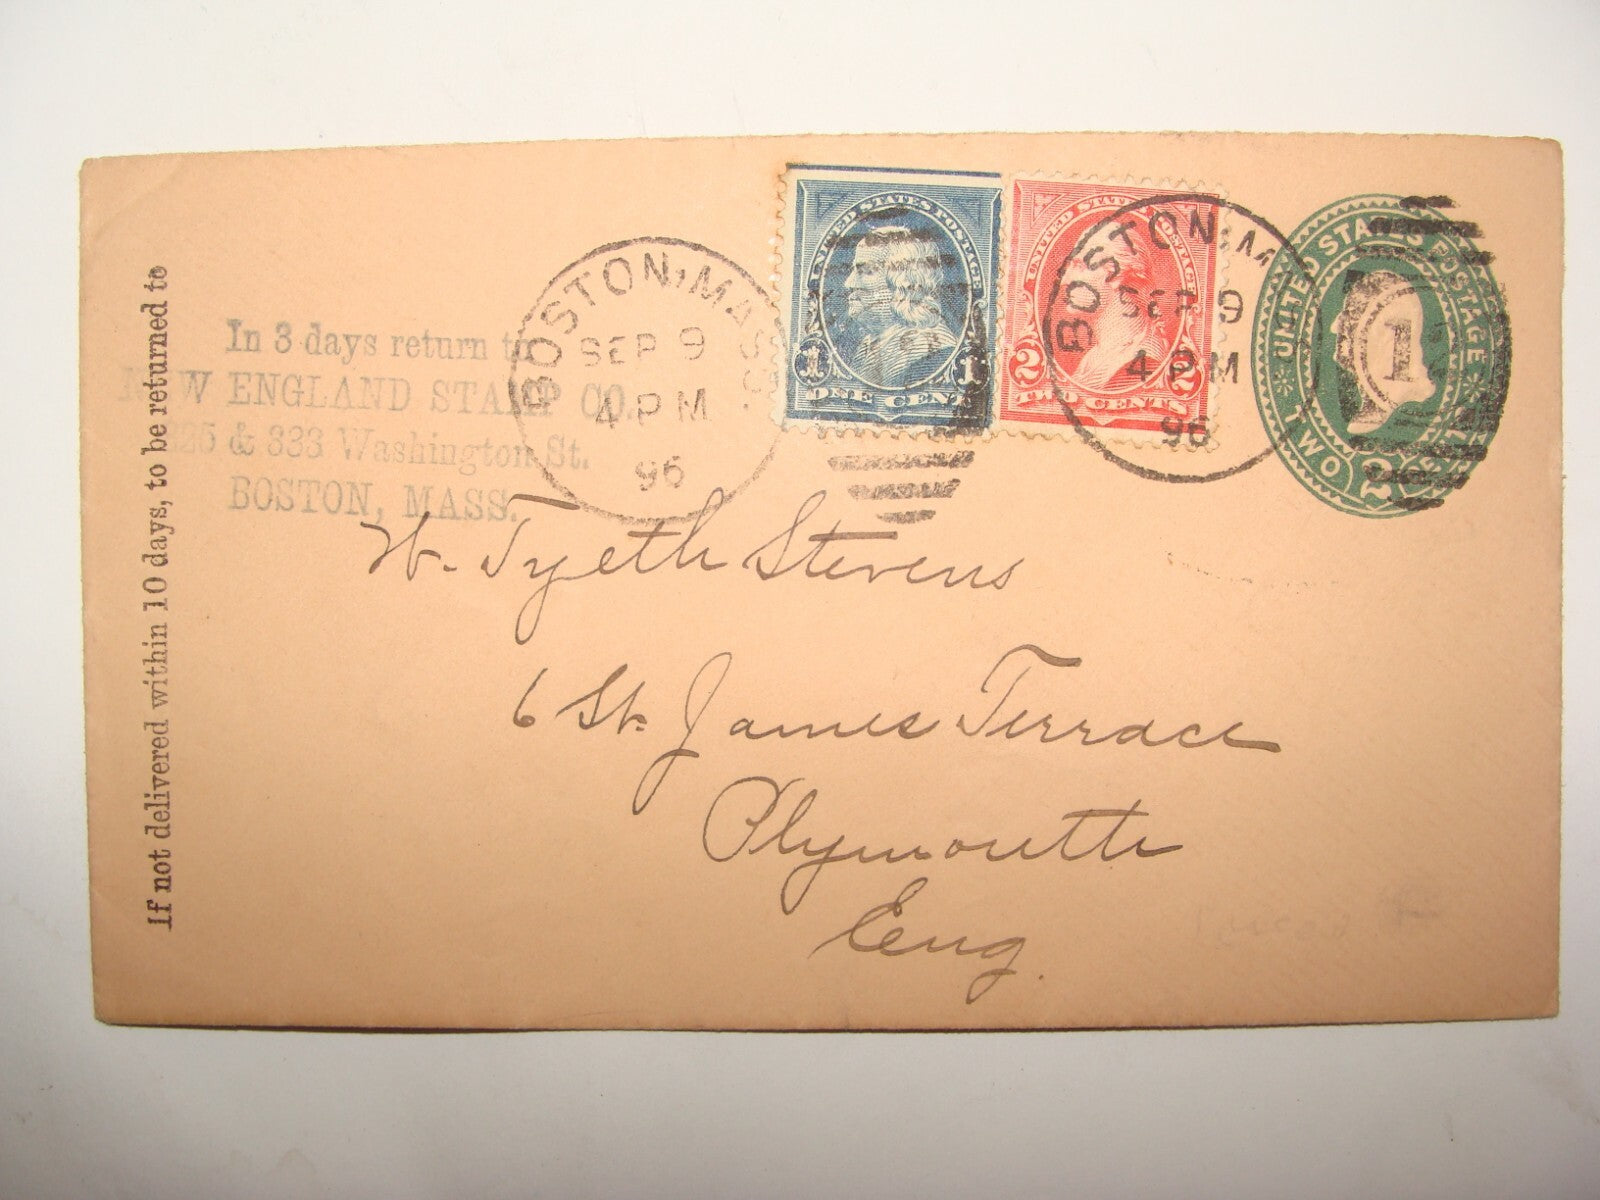 If not delivered within 10 days, to be returned to
In 3 days return to
NEW ENGLAND STAMP CO.
325 & 333 Washington St.
BOSTON, MASS.
BOSTON, MASS.
SEP 9
4 PM
96
UNITED STATES POSTAGE
1 1
ONE CENT
UNITED STATES POSTAGE
2 2
TWO CENTS
BOSTON, M
SEP 9
4 PM
96
UNITED STATES POSTAGE
TWO 2
1
W. Tyeth Stevens
6 St. James Terrace
Plymouth
Eng.